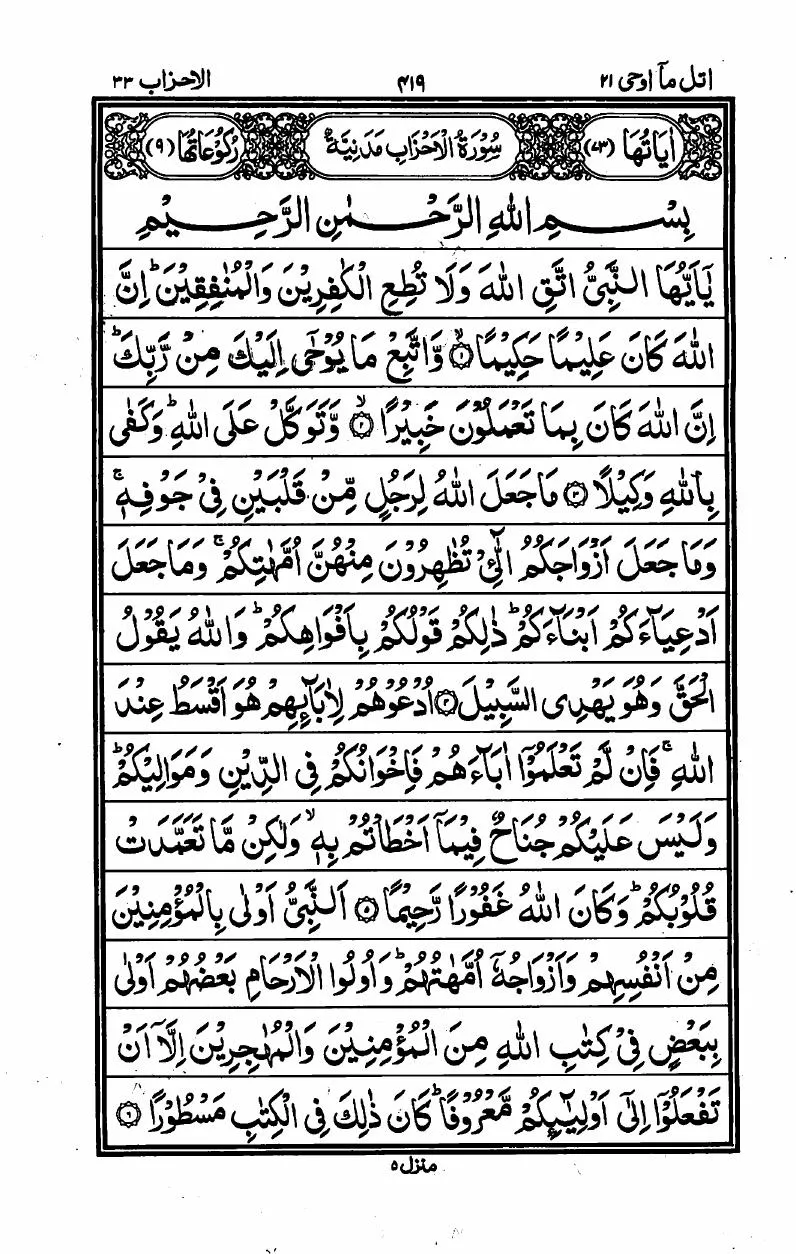 اتل مآ اوحی ۲۱ ۴۱۹ الاحزاب ۳۳
اٰيَاتُهَا (۷۳) سُوْرَةُ الْاَحْزَابِ مَدَنِيَّةٌ رُكُوْعَاتُهَا (۹)
بِسْمِ اللهِ الرَّحْمٰنِ الرَّحِيْمِ
يٰۤاَيُّهَا النَّبِيُّ اتَّقِ اللهَ وَلَا تُطِعِ الْكٰفِرِيْنَ وَالْمُنٰفِقِيْنَ ؕ اِنَّ
اللهَ كَانَ عَلِيْمًا حَكِيْمًا ۙ﴿۱﴾ وَّاتَّبِعْ مَا يُوْحٰۤى اِلَيْكَ مِنْ رَّبِّكَ ؕ
اِنَّ اللهَ كَانَ بِمَا تَعْمَلُوْنَ خَبِيْرًا ۙ﴿۲﴾ وَّتَوَكَّلْ عَلَى اللهِ ؕ وَكَفٰى
بِاللهِ وَكِيْلًا ﴿۳﴾ مَا جَعَلَ اللهُ لِرَجُلٍ مِّنْ قَلْبَيْنِ فِيْ جَوْفِهٖ ۚ
وَمَا جَعَلَ اَزْوَاجَكُمُ الّٰٓـِٔيْ تُظٰهِرُوْنَ مِنْهُنَّ اُمَّهٰتِكُمْ ۚ وَمَا جَعَلَ
اَدْعِيَآءَكُمْ اَبْنَآءَكُمْ ؕ ذٰلِكُمْ قَوْلُكُمْ بِاَفْوَاهِكُمْ ؕ وَاللهُ يَقُوْلُ
الْحَقَّ وَهُوَ يَهْدِى السَّبِيْلَ ﴿۴﴾ اُدْعُوْهُمْ لِاٰبَآئِهِمْ هُوَ اَقْسَطُ عِنْدَ
اللهِ ۚ فَاِنْ لَّمْ تَعْلَمُوْۤا اٰبَآءَهُمْ فَاِخْوَانُكُمْ فِى الدِّيْنِ وَمَوَالِيْكُمْ ؕ
وَلَيْسَ عَلَيْكُمْ جُنَاحٌ فِيْمَاۤ اَخْطَاْتُمْ بِهٖ ۙ وَلٰكِنْ مَّا تَعَمَّدَتْ
قُلُوْبُكُمْ ؕ وَكَانَ اللهُ غَفُوْرًا رَّحِيْمًا ﴿۵﴾ اَلنَّبِيُّ اَوْلٰى بِالْمُؤْمِنِيْنَ
مِنْ اَنْفُسِهِمْ وَاَزْوَاجُهٗۤ اُمَّهٰتُهُمْ ؕ وَاُولُوا الْاَرْحَامِ بَعْضُهُمْ اَوْلٰى
بِبَعْضٍ فِيْ كِتٰبِ اللهِ مِنَ الْمُؤْمِنِيْنَ وَالْمُهٰجِرِيْنَ اِلَّاۤ اَنْ
تَفْعَلُوْۤا اِلٰۤى اَوْلِيٰٓئِكُمْ مَّعْرُوْفًا ؕ كَانَ ذٰلِكَ فِى الْكِتٰبِ مَسْطُوْرًا ﴿۶﴾
منزل ۵